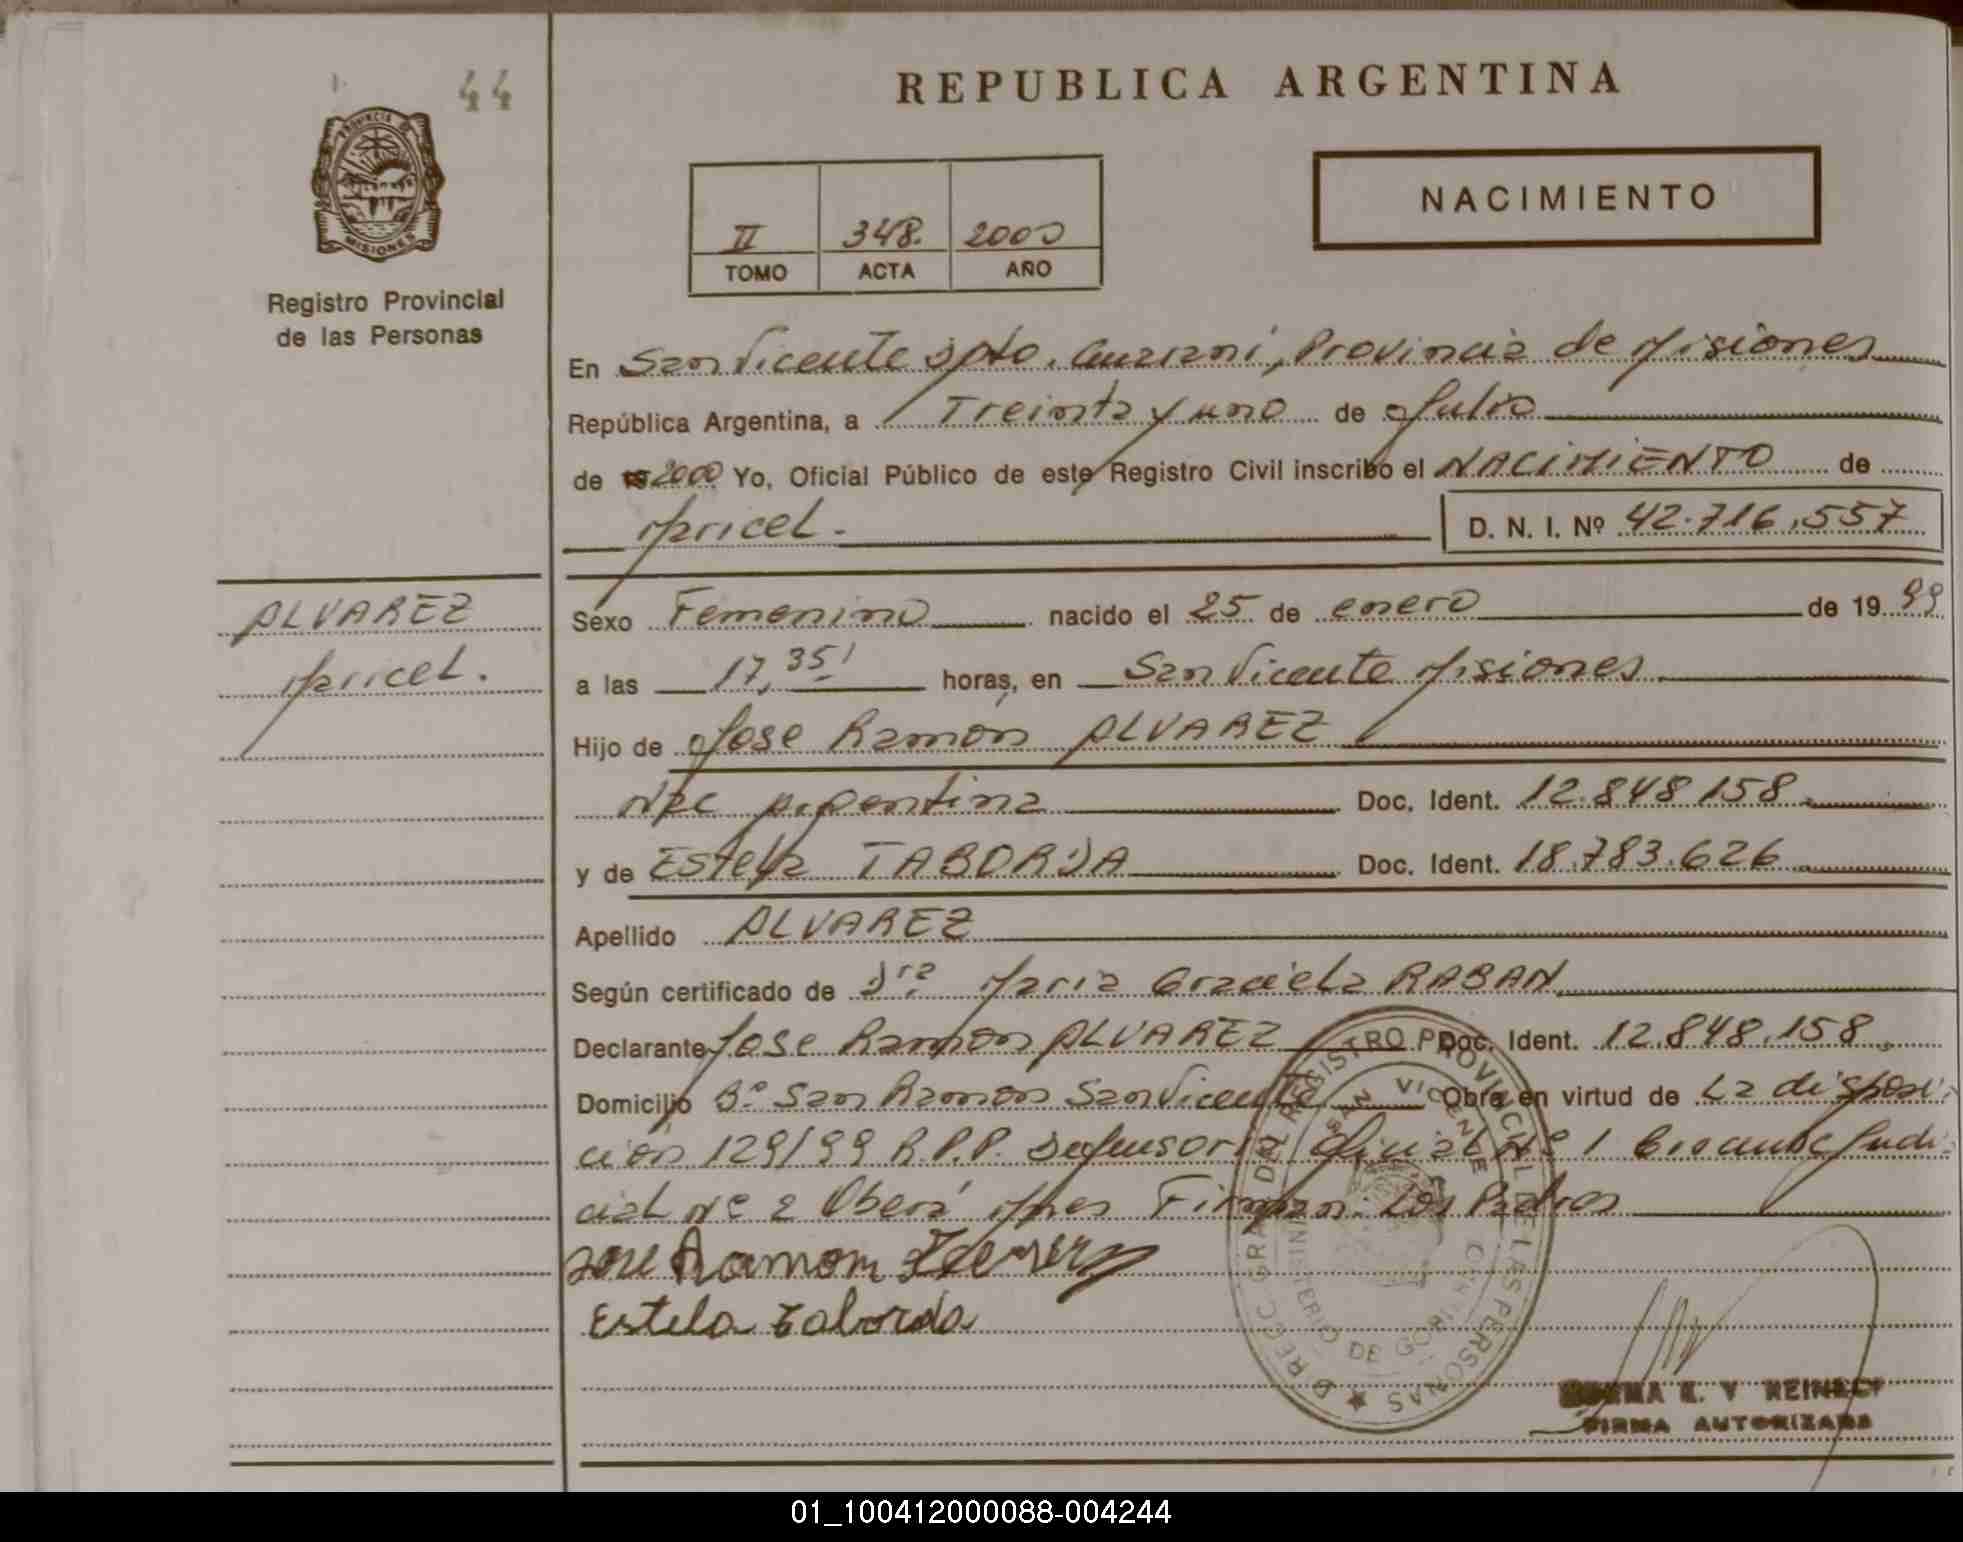 44
REPUBLICA ARGENTINA
PROVINCIA DE
MISIONES
Registro Provincial
de las Personas
II 348. 2000
TOMO ACTA AÑO
NACIMIENTO
En San Vicente Dpto. Guaraní, Provincia de Misiones
República Argentina, a Treinta y uno de Julio
de 19 2000 Yo, Oficial Público de este Registro Civil inscribo el NACIMIENTO de
Maricel. D. N. I. Nº 42.716.557
ALVAREZ
Maricel.
Sexo Femenino nacido el 25 de enero de 19 99
a las 17,35' horas, en San Vicente Misiones
Hijo de Jose Ramon ALVAREZ
Nac Argentina Doc. Ident. 12.848.158
y de Estela TABORDA Doc. Ident. 18.783.626
Apellido ALVAREZ
Según certificado de Dra Maria Graciela RABAN
Declarante Jose Ramon ALVAREZ Doc. Ident. 12.848.158
Domicilio Bº San Ramon San Vicente Obra en virtud de La disposi-
ción 129/99 R.P.P. Defensoria Oficial Nº 1 Circunsc Judi-
cial Nº 2 Oberá Mnes Firman: Los Padres
José Ramon
Estela Taborda
DIRECC. GRAL. DEL REGISTRO PROVINCIAL DE LAS PERSONAS
SAN VICENTE
MINISTERIO DE GOBIERNO
NORMA E. V REINECK
FIRMA AUTORIZADA
01_100412000088-004244